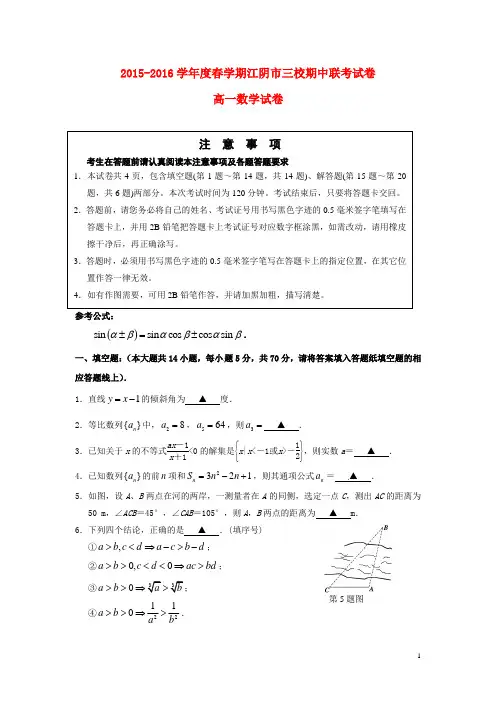 2015-2016学年度春学期江阴市三校期中联考试卷
高一数学试卷
注 意 事 项
考生在答题前请认真阅读本注意事项及各题答题要求
1．本试卷共4页，包含填空题(第1题～第14题，共14题)、解答题(第15题～第20
题，共6题)两部分。本次考试时间为120分钟。考试结束后，只要将答题卡交回。
2．答题前，请您务必将自己的姓名、考试证号用书写黑色字迹的0.5毫米签字笔填写在
答题卡上，并用2B铅笔把答题卡上考试证号对应数字框涂黑，如需改动，请用橡皮
擦干净后，再正确涂写。
3．答题时，必须用书写黑色字迹的0.5毫米签字笔写在答题卡上的指定位置，在其它位
置作答一律无效。
4．如有作图需要，可用2B铅笔作答，并请加黑加粗，描写清楚。
参考公式:
sin(α±β)=sinαcosβ±cosαsinβ．
一、填空题:（本大题共14小题，每小题5分，共70分，请将答案填入答题纸填空题的相
应答题线上）．
1．直线y=x-1的倾斜角为 ▲ 度．
2．等比数列{aₙ}中，a₂=8，a₅=64，则a₃= ▲ ．
3．已知关于x的不等式(ax－1)/(x＋1)<0的解集是{x|x<－1或x>－1/2}，则实数a＝ ▲ ．
4．已知数列{aₙ}的前n项和Sₙ=3n²-2n+1，则其通项公式aₙ＝ ▲ ．
5．如图，设A、B两点在河的两岸，一测量者在A的同侧，选定一点C，测出AC的距离为
50 m，∠ACB＝45°，∠CAB＝105°，则A，B两点的距离为 ▲ m．
6．下列四个结论，正确的是 ▲ ．(填序号)
①a>b,c<d⇒a-c>b-d；
②a>b>0,c<d<0⇒ac>bd；
③a>b>0⇒∛a>∛b；
④a>b>0⇒1/a²>1/b²．
B
C
A
第5题图
1